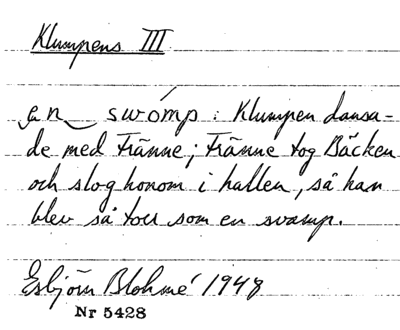 Klumpens III
en swómp : Klumpen dansa-
de med Fränne; Fränne tog Bäcken
och slog honom i hallen, så han
blev så tou som en svamp.
Esbjörn Blohmé 1948
Nr 5428